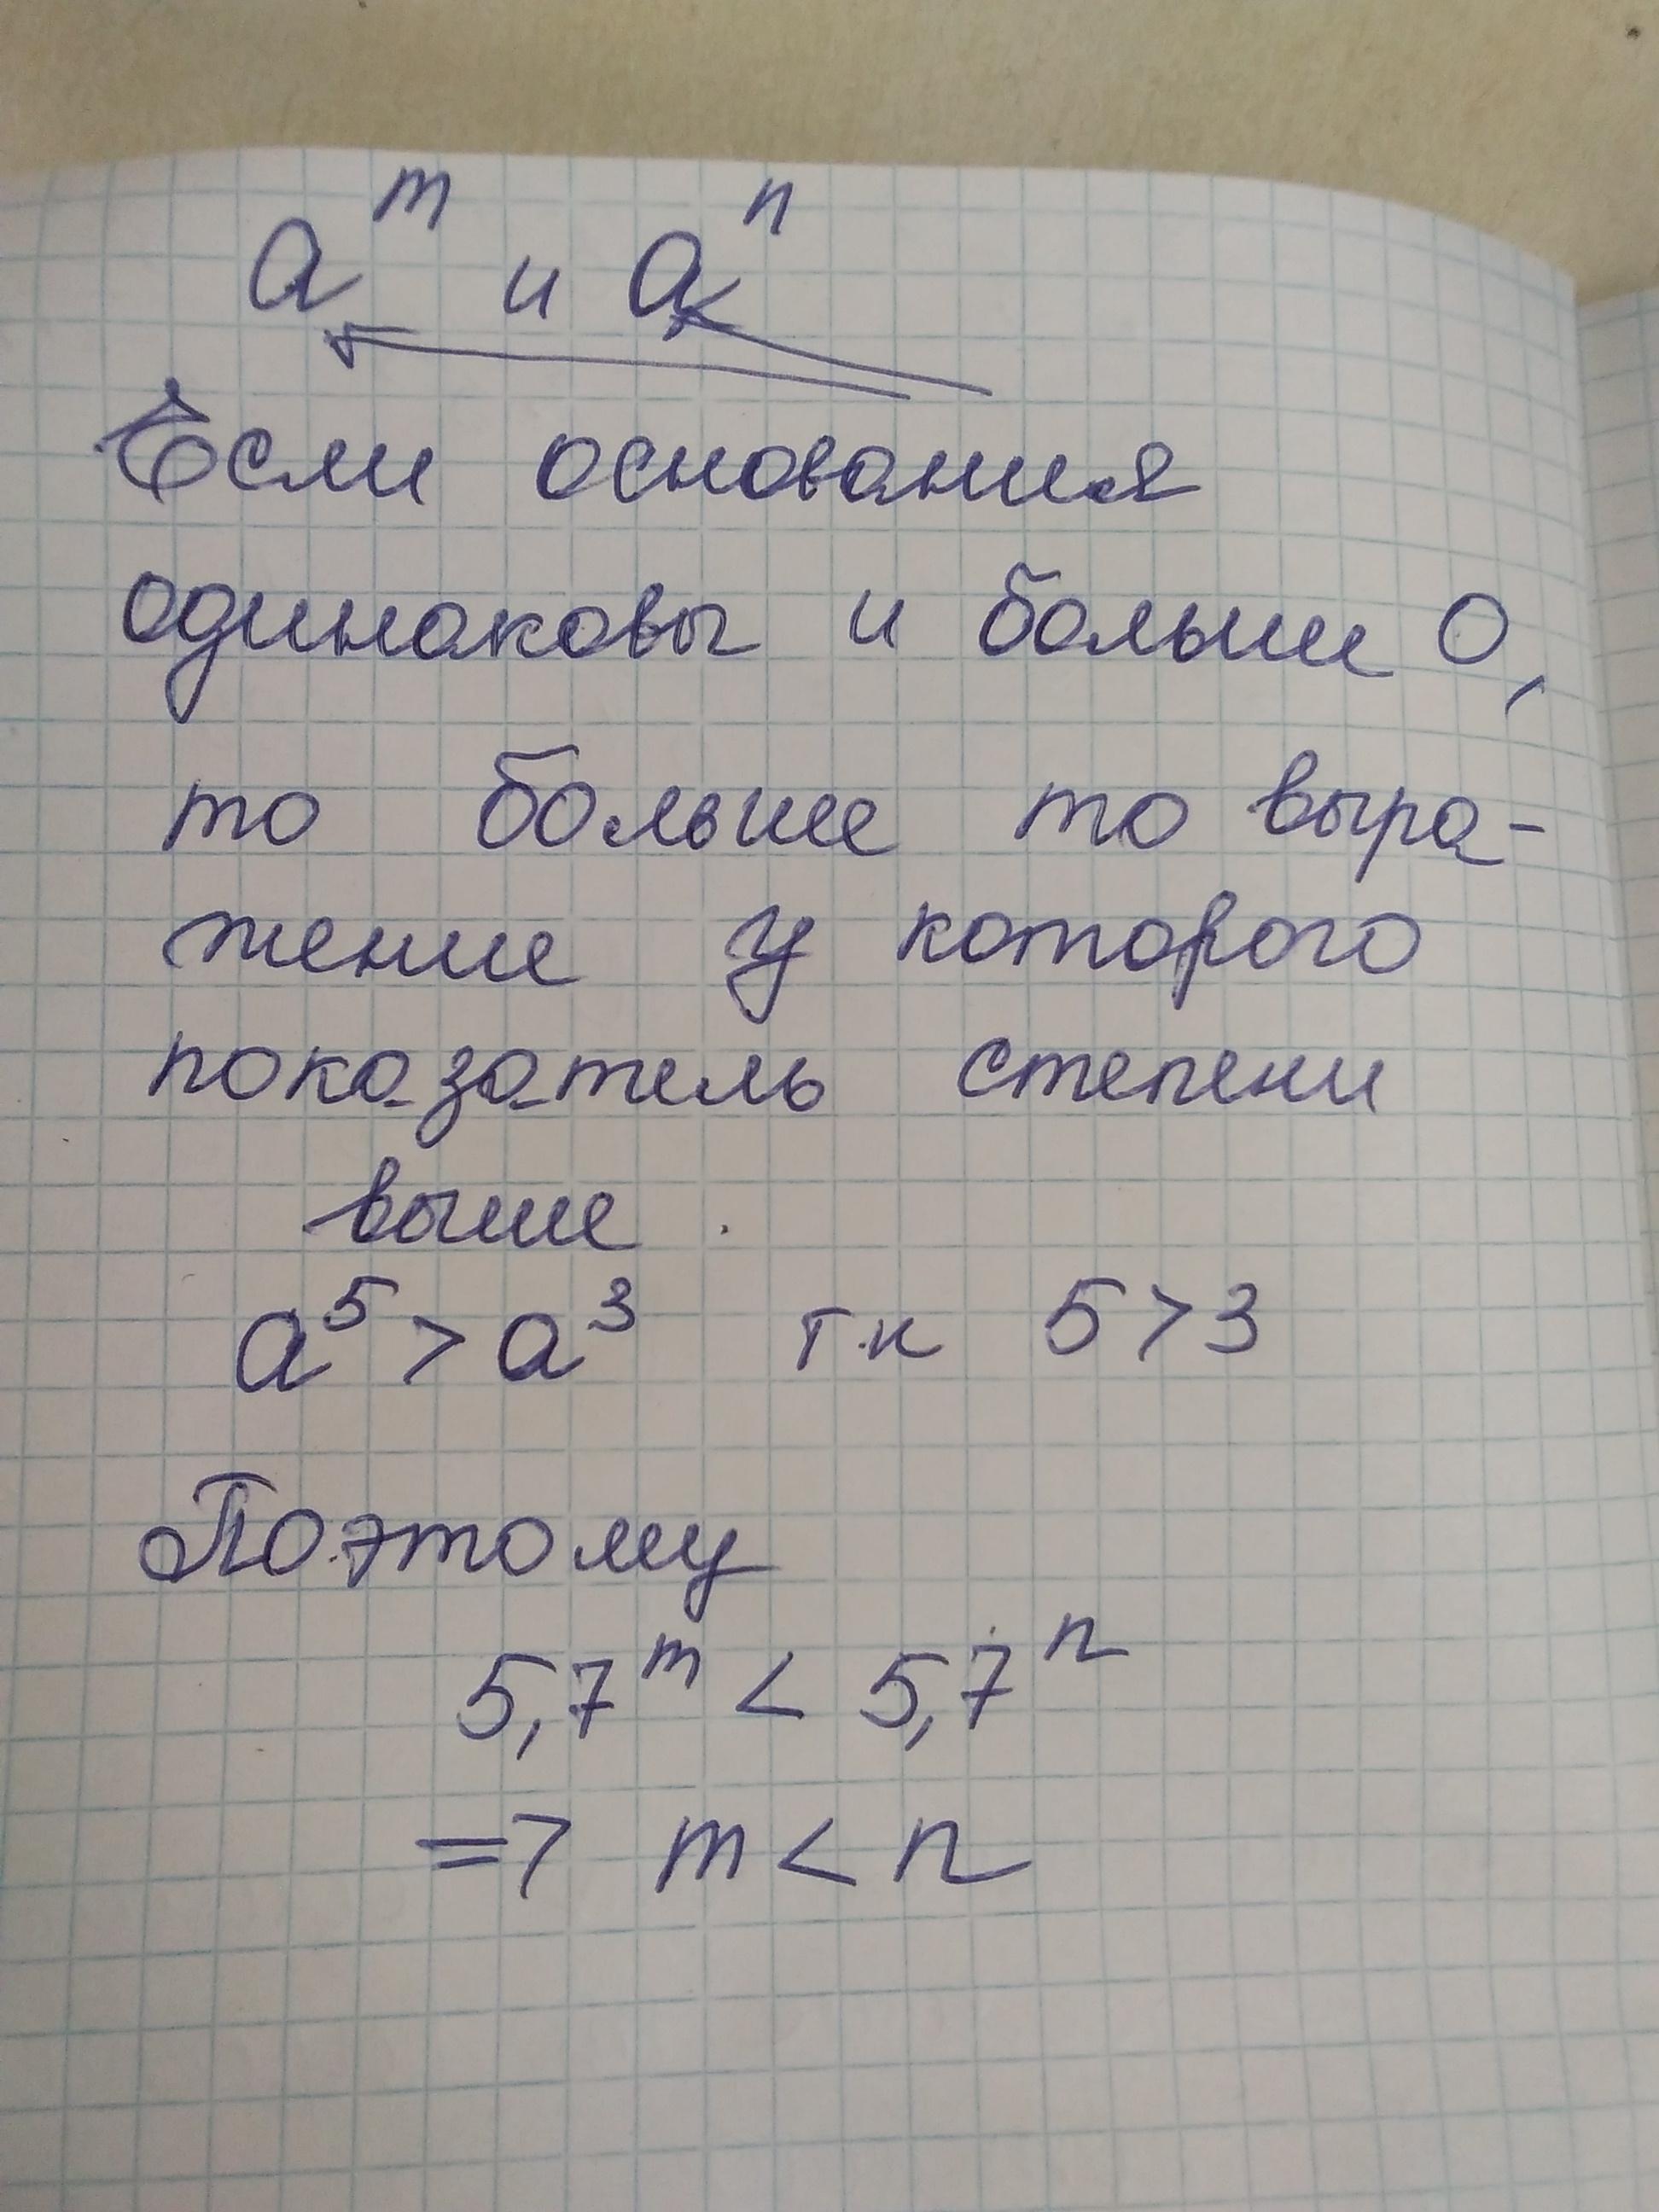 a^m и a^n
Если основания
одинаковы и больше 0,
то больше то выра-
жение у которого
показатель степени
выше
a^5 > a^3 т.к 5 > 3
Поэтому
5,7^m < 5,7^n
=> m < n